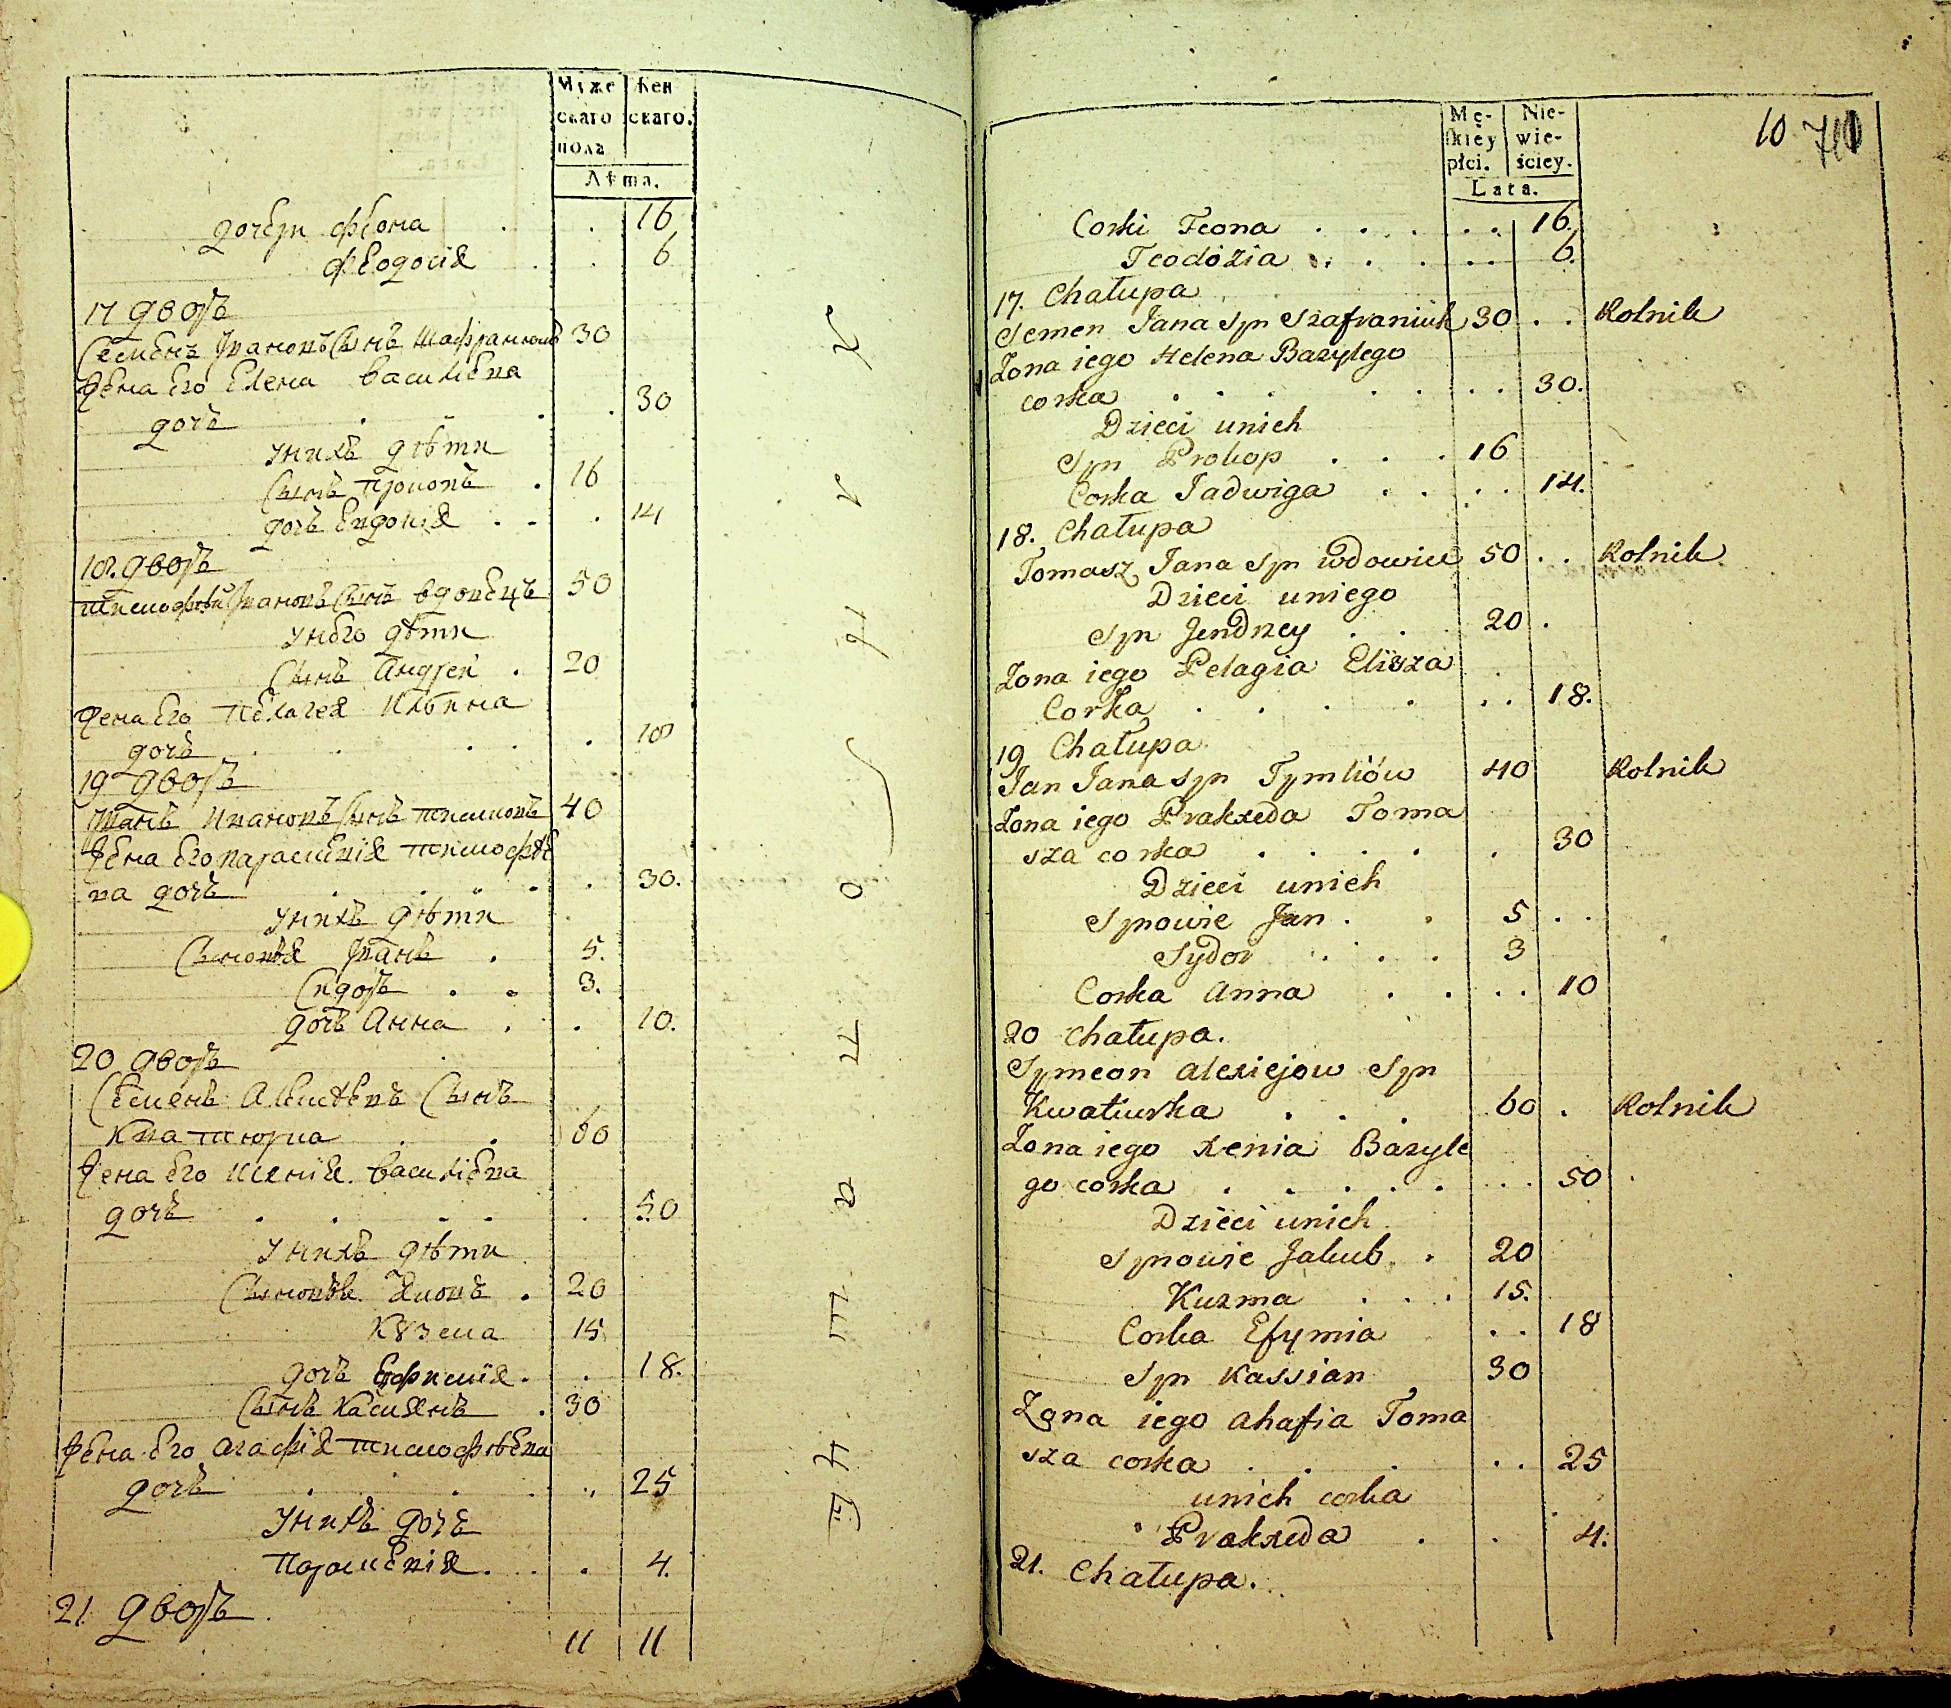 Муже
скаго
полꙋ
Жен
скаго.
Лѣта.
дочери Феона . . 16
Феодосія . . 6
17 дворъ
Семенъ Ивановъ сынъ Шафранюкъ 30
жена его Елена Василієва
дочь . . . . 30
у нихъ дѣти
сынъ Прокопъ . 16
дочь Евдокія . . . 14
18. дворъ
Тимофѣй Ивановъ сынъ вдовецъ 50
у него дѣти
сынъ Андрей . 20
жена его Пелагея Илѣина
дочь . . . . . 18
19 дворъ
Иванъ Ивановъ сынъ Тимковъ 40
жена его Параскевія Тимофѣе
ва дочь . . . . . 30.
у нихъ дѣти
сыновѣя Иванъ . 5.
Сидоръ . . 3.
дочь Анна . . 10.
20 дворъ
Семенъ Алексѣевъ сынъ
Кватюрка . . 60
жена его Ксенія Василієва
дочь . . . . . 50
у нихъ дѣти
сыновѣя Яковъ . 20
Кꙋзма 15
дочь Ефимія . . 18.
сынъ Касиянъ . 30
жена его Агафія Тимофѣева
дочь . . . . 25
у нихъ дочь
Параскевія . . . 4.
21 дворъ
11 11
Mę-
skiey
płci.
Nie-
wie-
ściey.
Lata.
10 710
Corki Feona . . . . . . 16.
Teodozia . . . . . 6.
17. Chałupa
Semen Jana syn Szafraniuk 30 . . Rolnik
Zona iego Helena Bazylego
corka . . . . . . 30.
Dzieci unich
Syn Prokop . . . 16
Corka Jadwiga . . . . 14.
18. Chałupa
Tomasz Jana syn wdowiec 50 . . Rolnik
Dzieci uniego
Syn Jendrzey . . 20 .
Zona iego Pelagia Elisza
Corka . . . . . . 18.
19 Chałupa
Jan Jana syn Tymków 40 Rolnik
Zona iego Prakxeda Toma
sza corka . . . . . 30
Dzieci unich
Synowie Jan . . 5 . .
Sydor . . . 3
Corka Anna . . . . 10
20 Chałupa.
Symeon Alexiejow Syn
Kwatiurka . . . 60 . Rolnik
Zona iego Xenia Bazyle
go corka . . . . . . . 50
Dzieci unich
Synowie Jakub . 20
Kuzma . . . 15.
Corka Efymia . . 18
Syn Kassian 30
Zona iego Ahafia Toma
sza corka . . . . . 25
unich corka
Prakxeda . . 4.
21. Chałupa.